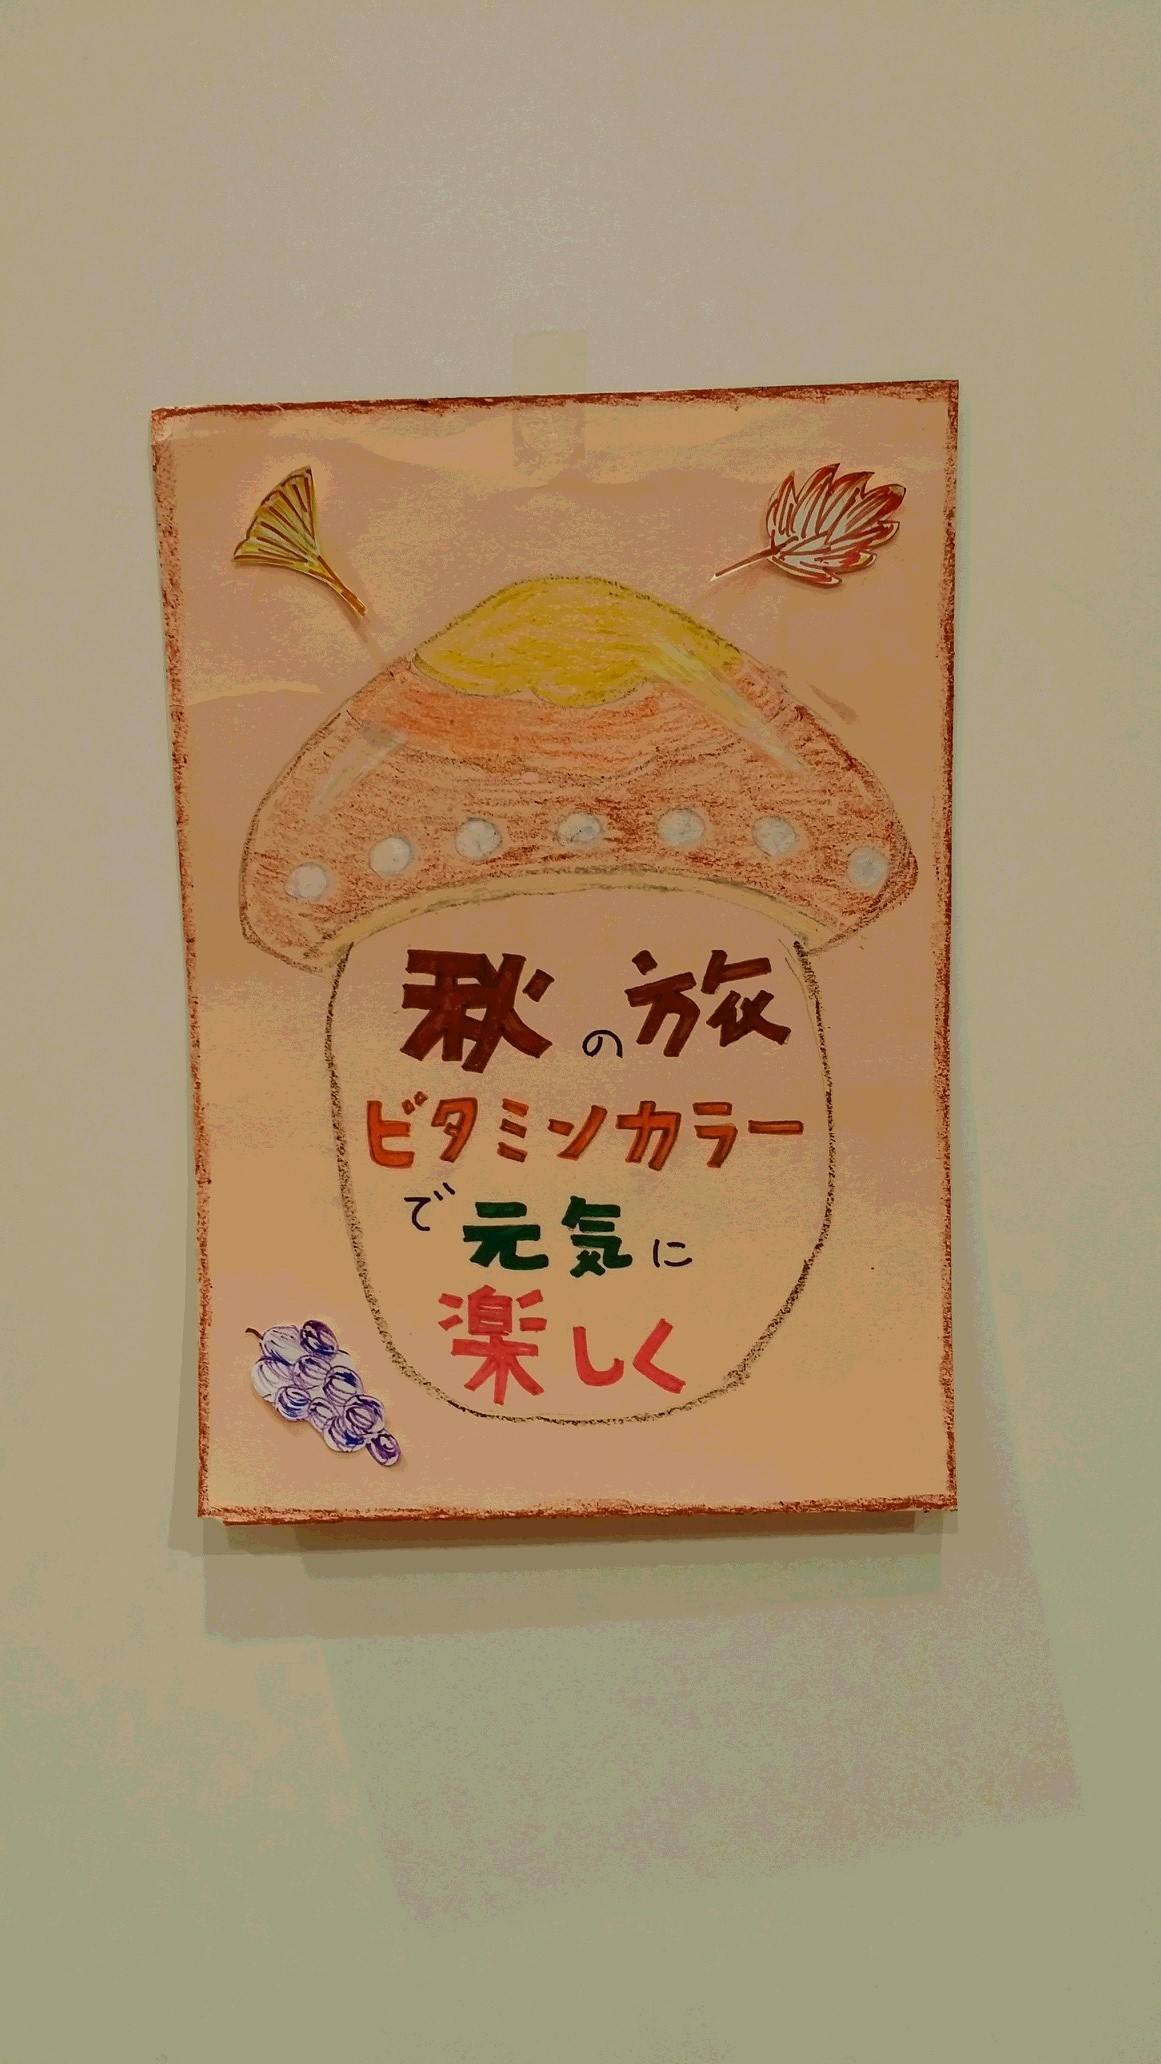 秋の旅
ビタミンカラー
で元気に
楽しく